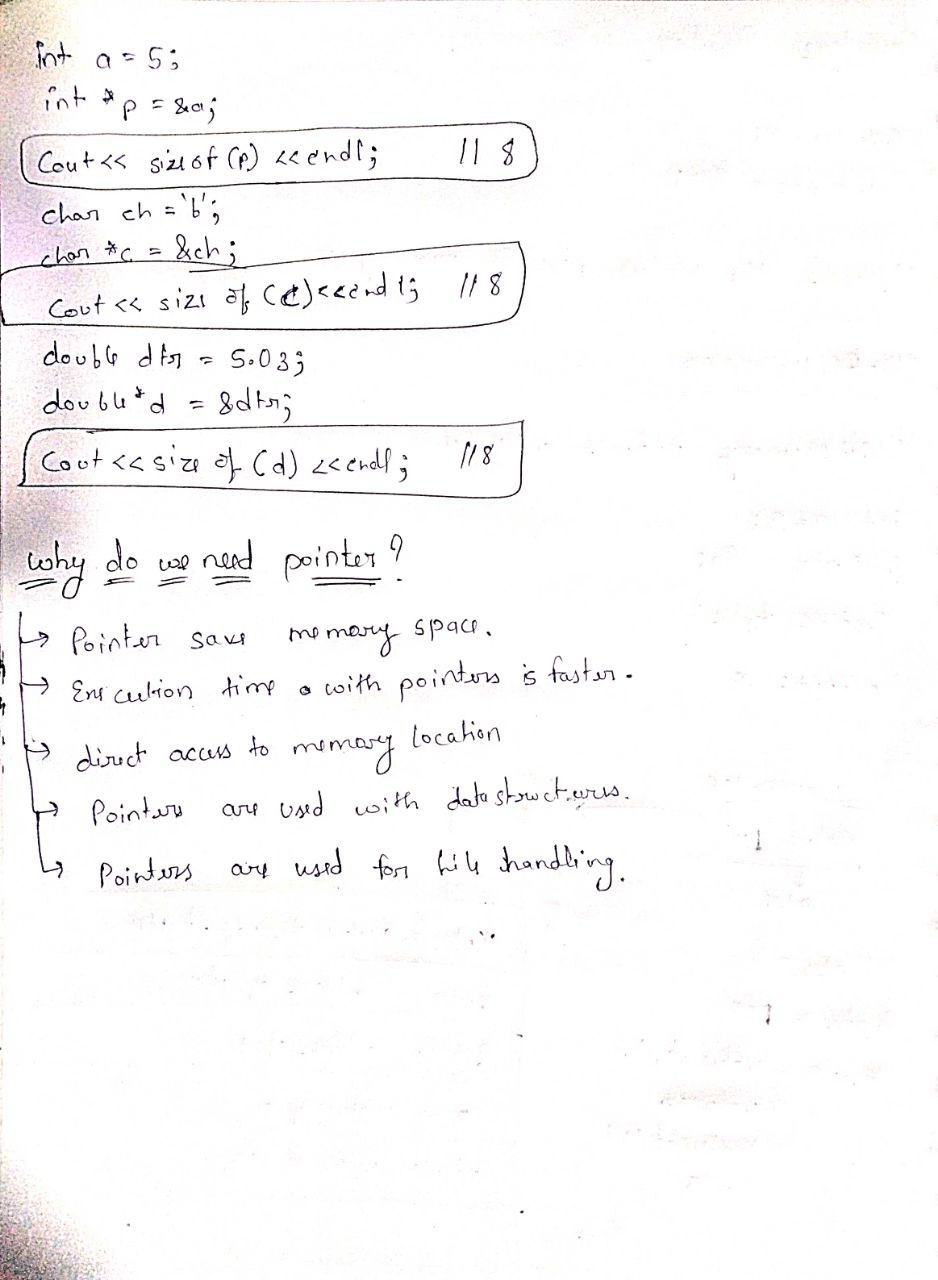 int a = 5;
int *p = &a;
Cout << sizeof (p) << endl; // 8
char ch = 'b';
char *c = &ch;
Cout << size of (c) << endl; // 8
double dtr = 5.03;
double *d = &dtr;
Cout << size of (d) << endl; // 8
why do we need pointer ?
→ Pointer save memory space.
→ Execution time with pointers is faster.
→ direct access to memory location
→ Pointers are used with data structures.
→ Pointers are used for file handling.